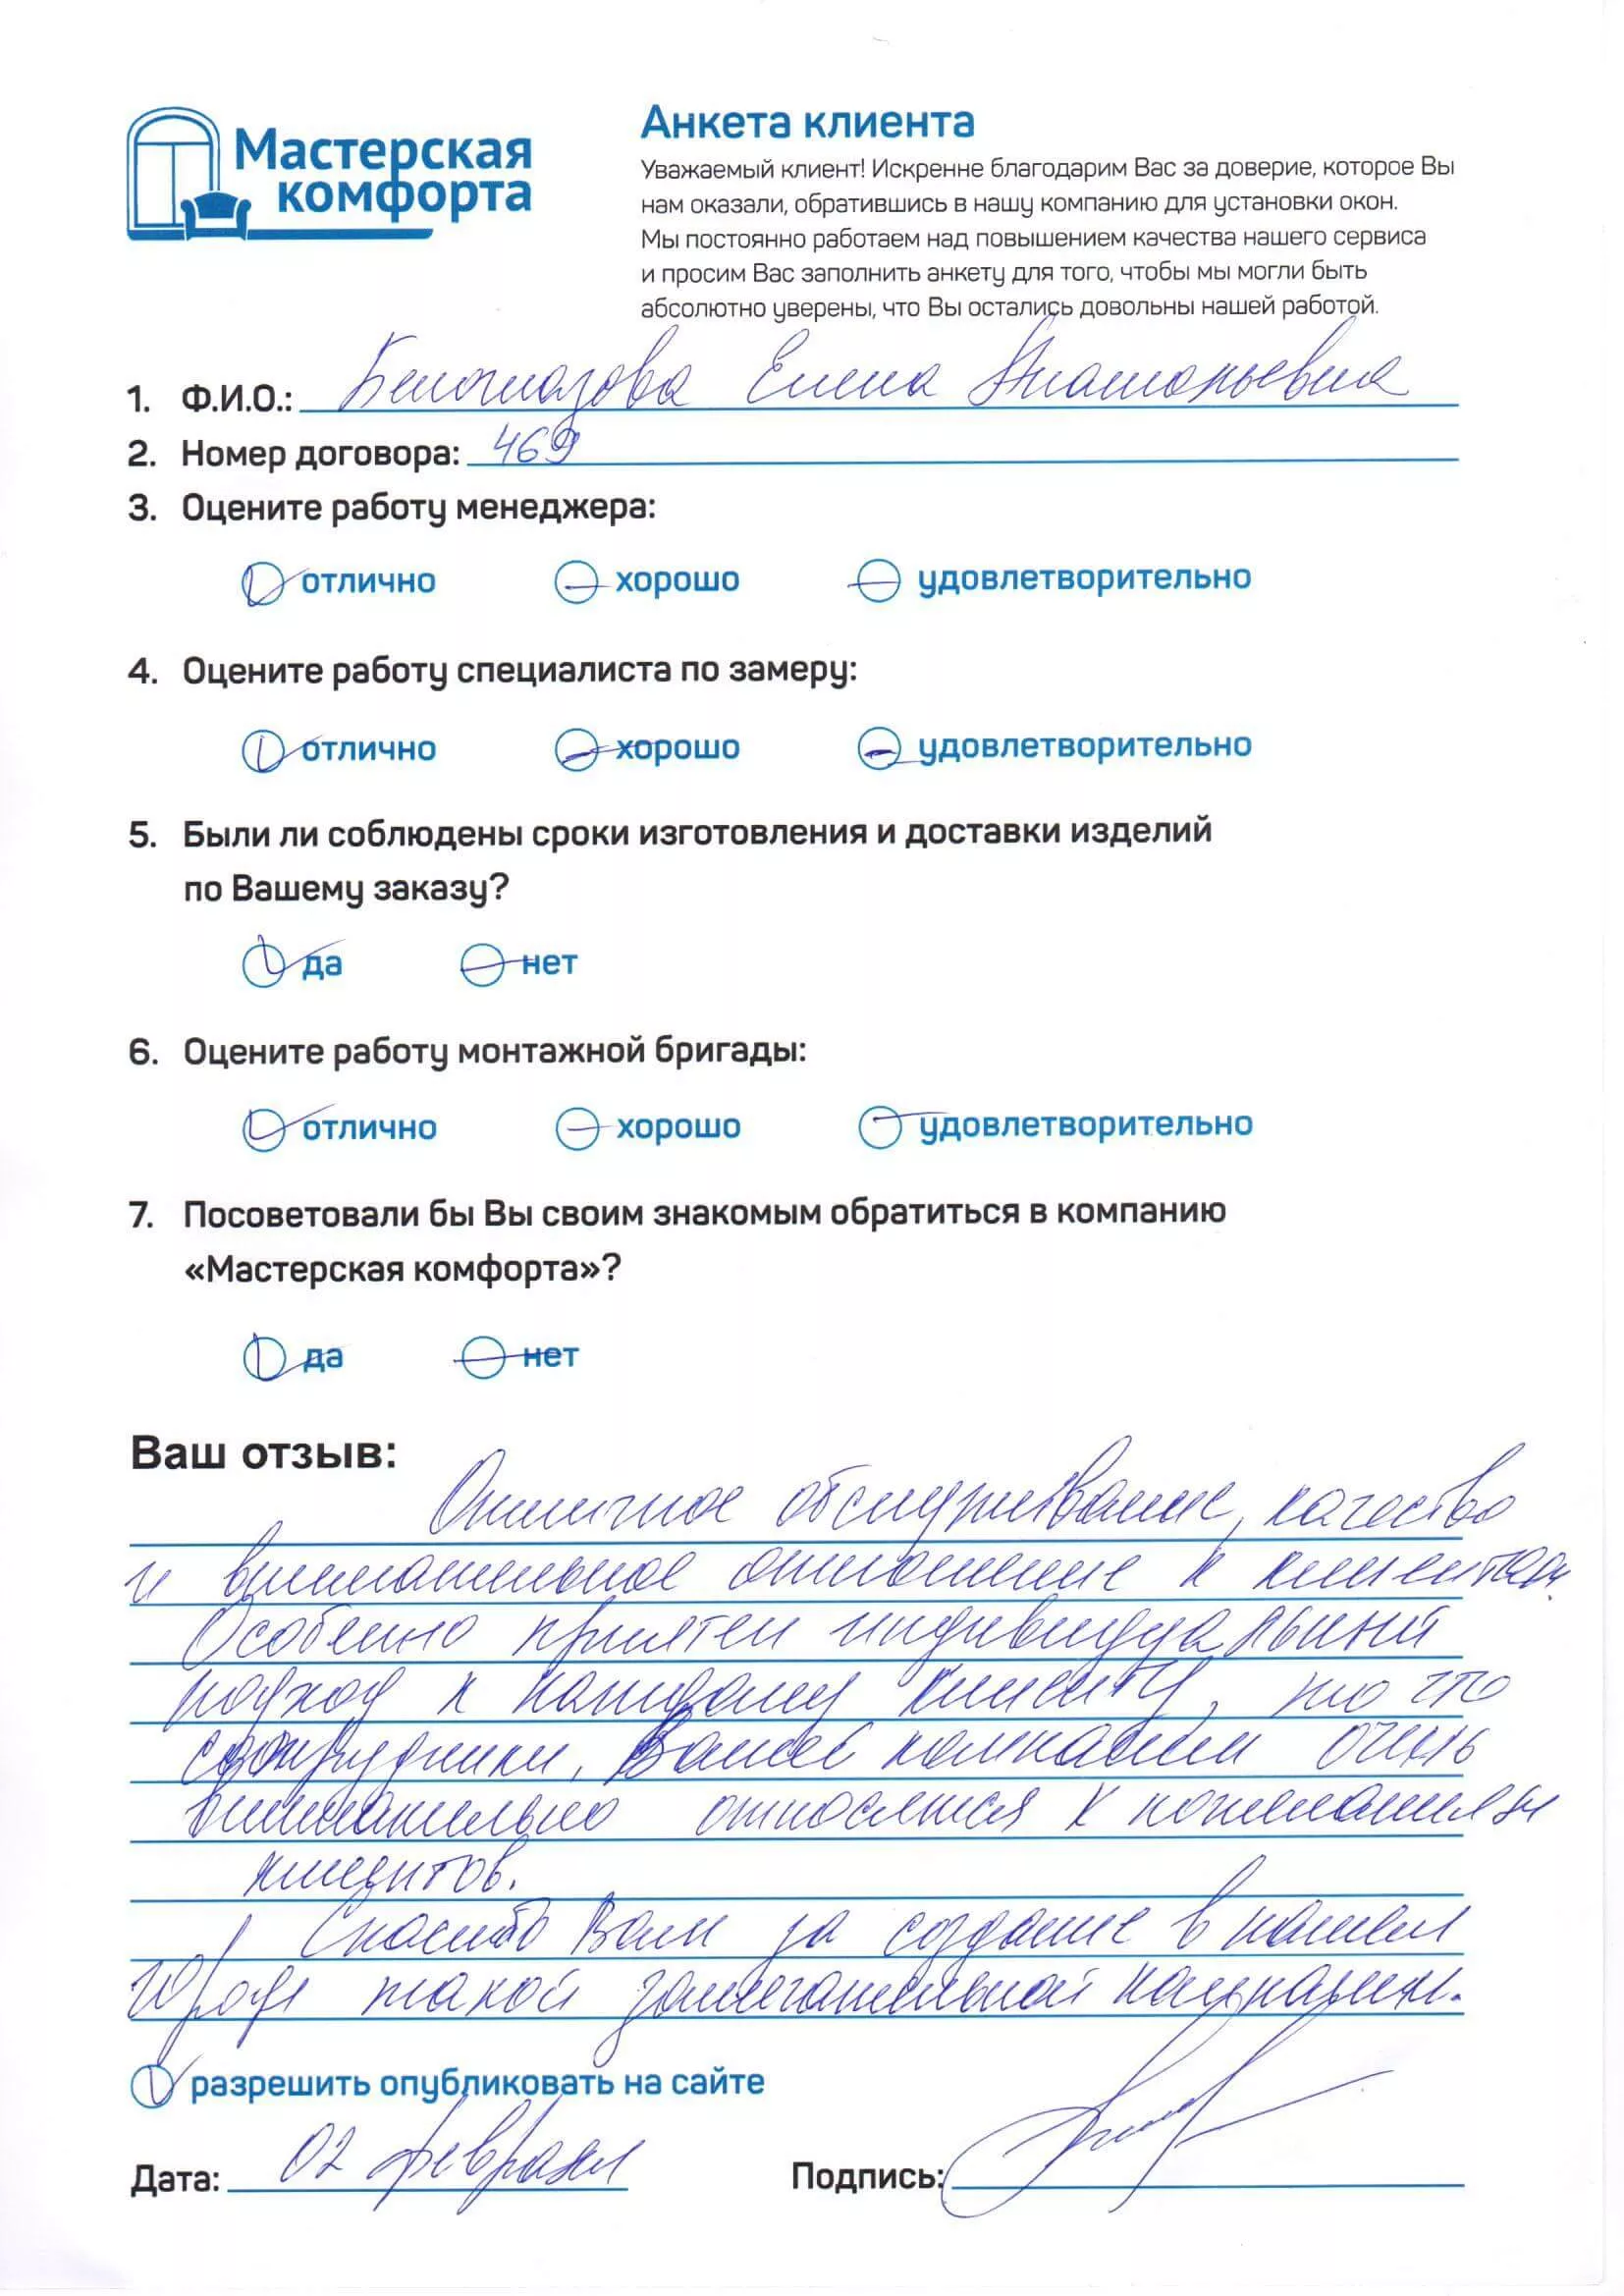 Мастерская
комфорта
Анкета клиента
Уважаемый клиент! Искренне благодарим Вас за доверие, которое Вы
нам оказали, обратившись в нашу компанию для установки окон.
Мы постоянно работаем над повышением качества нашего сервиса
и просим Вас заполнить анкету для того, чтобы мы могли быть
абсолютно уверены, что Вы остались довольны нашей работой.
1. Ф.И.О.: Белоглазова Елена Анатольевна
2. Номер договора: 469
3. Оцените работу менеджера:
отлично хорошо удовлетворительно
4. Оцените работу специалиста по замеру:
отлично хорошо удовлетворительно
5. Были ли соблюдены сроки изготовления и доставки изделий
по Вашему заказу?
да нет
6. Оцените работу монтажной бригады:
отлично хорошо удовлетворительно
7. Посоветовали бы Вы своим знакомым обратиться в компанию
«Мастерская комфорта»?
да нет
Ваш отзыв:
Отличное обслуживание, качество
и внимательное отношение к клиентам.
Особенно приятен индивидуальный
подход к каждому клиенту, то что
сотрудники, Вашей компании очень
внимательно относятся к пожеланиям
клиентов.
Спасибо Вам за создание в нашем
городе такой замечательной компании.
разрешить опубликовать на сайте
Дата: 02 февраля Подпись: